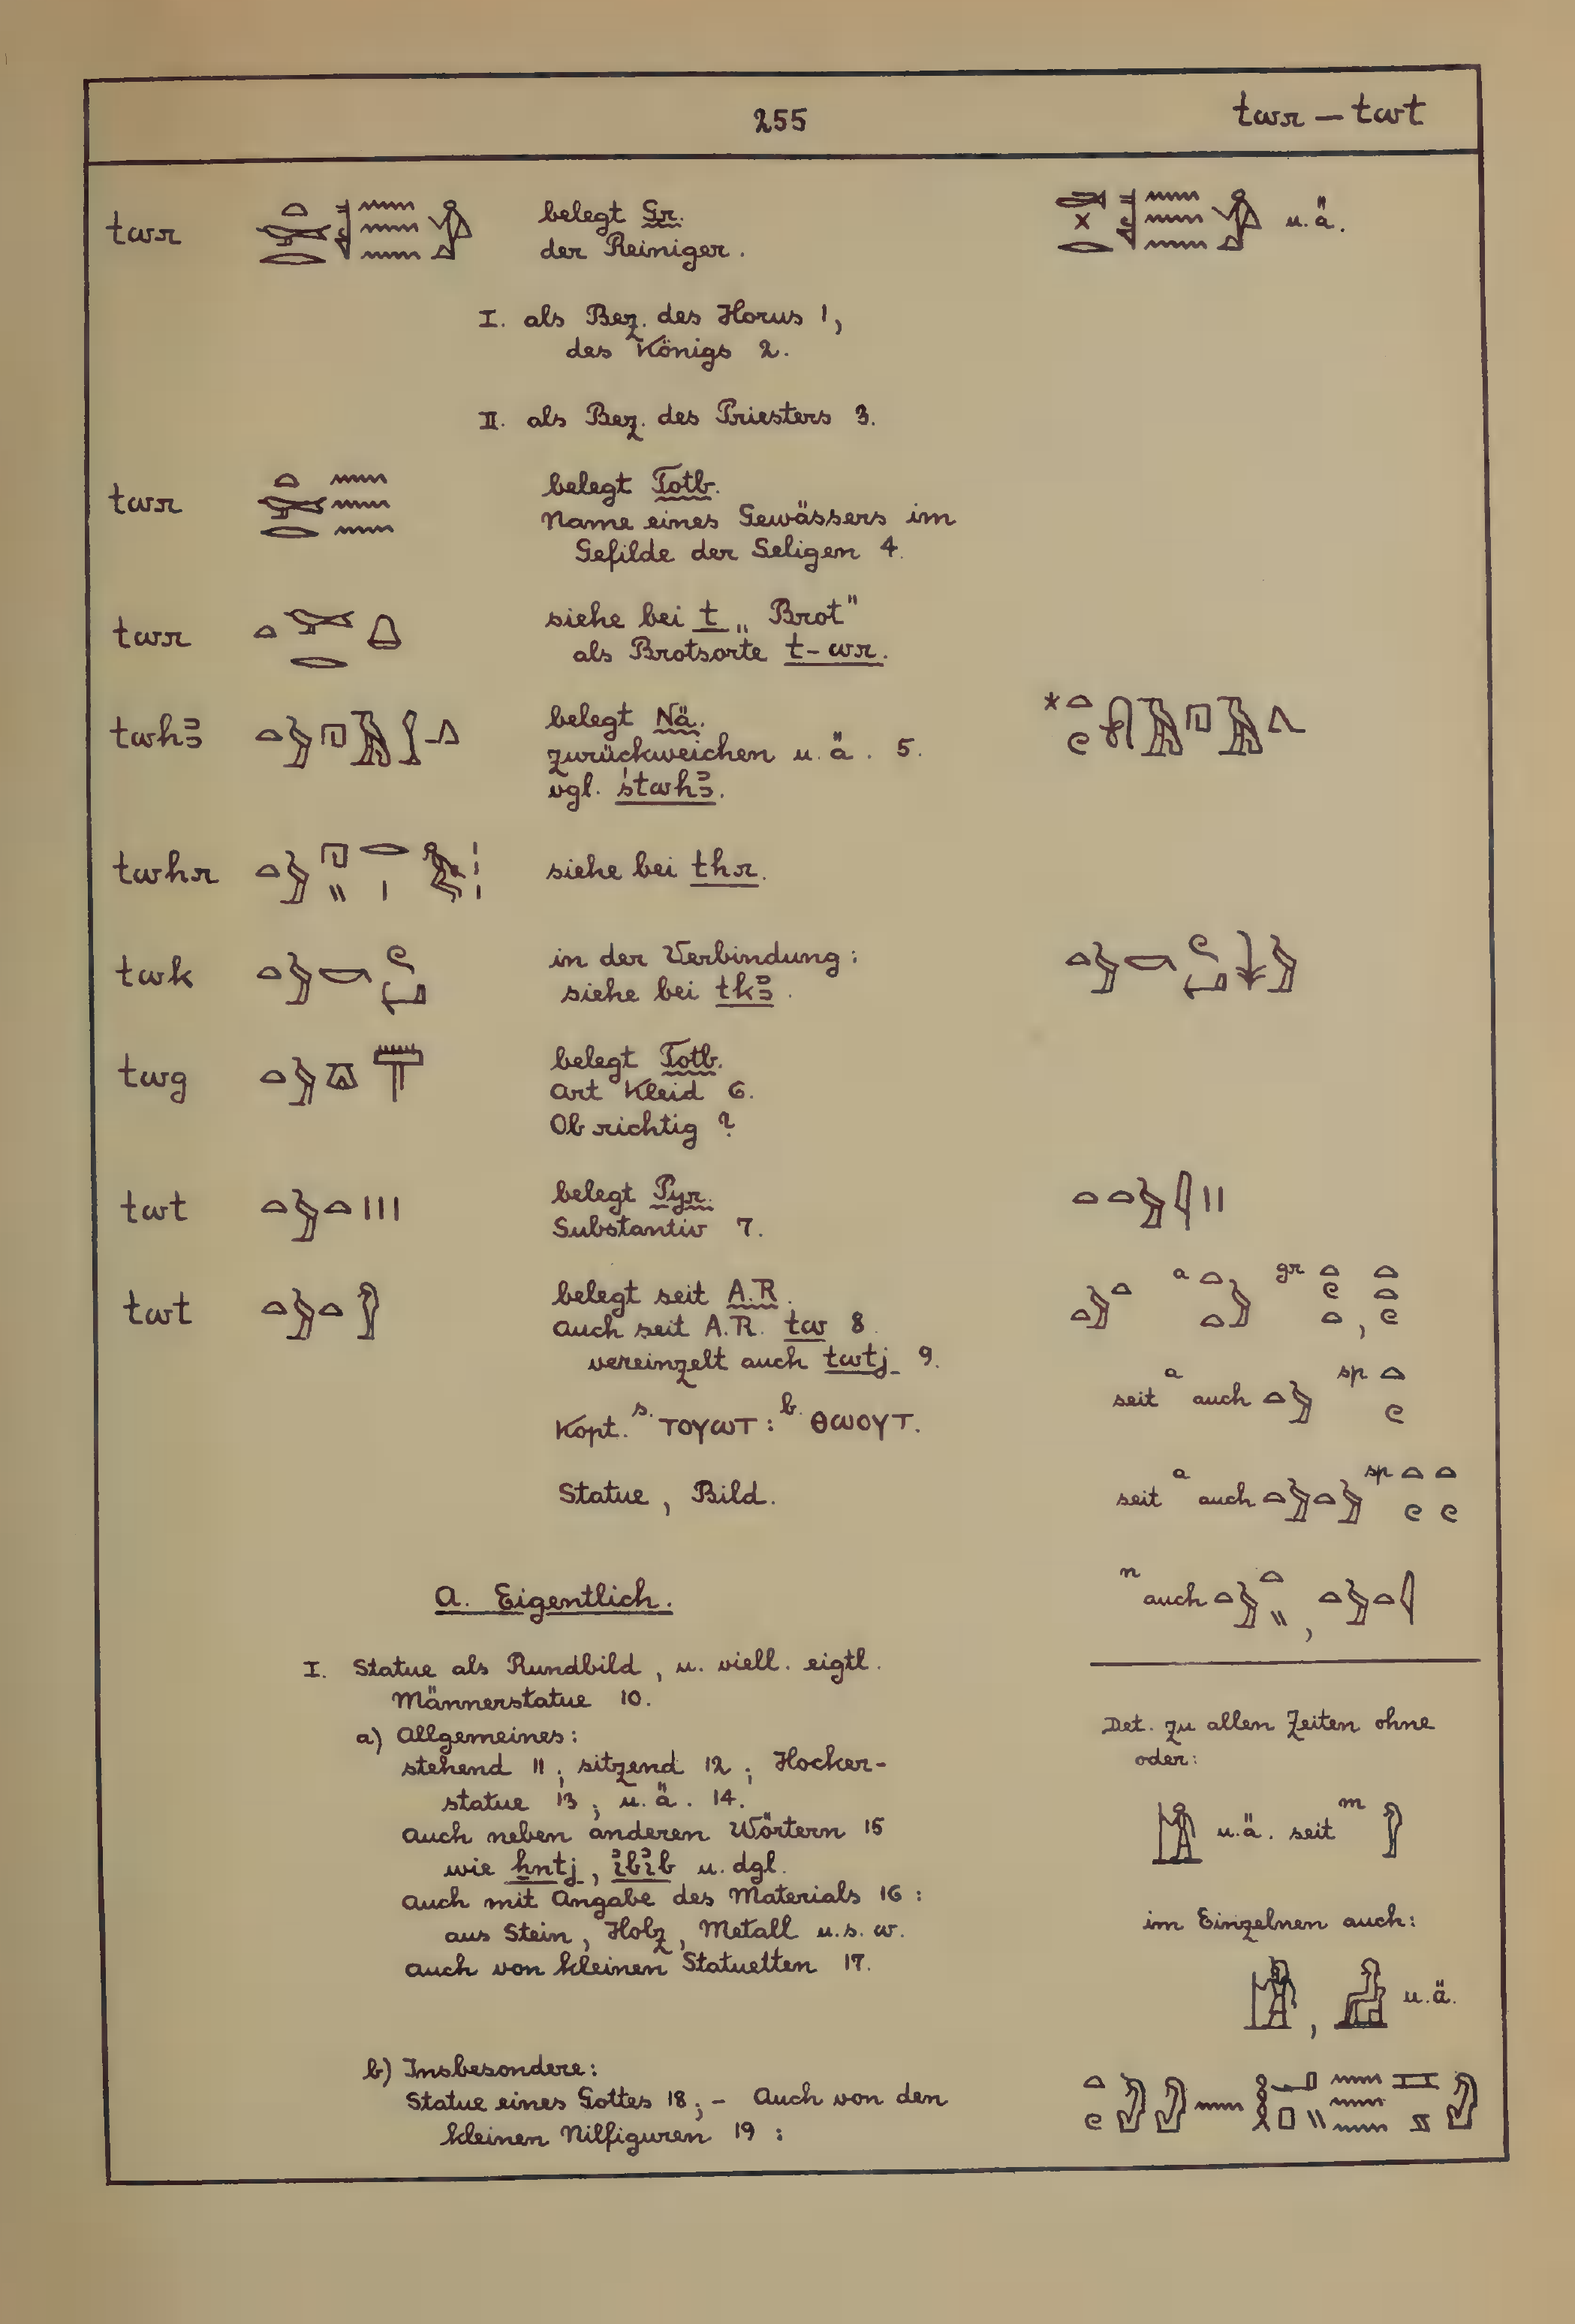 255
twr — twt
twr
belegt Gr.
der Reiniger.
u.ä.
I. als Bez. des Horus 1,
des Königs 2.
II. als Bez. des Priesters 3.
twr
belegt Totb.
Name eines Gewässers im
Gefilde der Seligen 4.
twr
siehe bei t „Brot"
als Brotsorte t-wr.
twhꜣ
belegt Nä.
zurückweichen u.ä. 5.
vgl. śtwhꜣ.
*
twhr
siehe bei thr.
twk
in der Verbindung:
siehe bei tkꜣ.
twg
belegt Totb.
Art Kleid 6.
Ob richtig?
twt
belegt Pyr.
Substantiv 7.
twt
belegt seit A.R.
a gr ,
auch seit A.R. tw 8
vereinzelt auch twtj 9.
seit a auch sp
Kopt. s. ⲧⲟⲩⲱⲧ : b. ⲑⲱⲟⲩⲧ.
Statue, Bild.
seit a auch sp
n auch ,
A. Eigentlich.
I. Statue als Rundbild, u. viell. eigtl.
Männerstatue 10.
a) Allgemeines:
stehend 11; sitzend 12; Hocker-
statue 13; u.ä. 14.
Auch neben anderen Wörtern 15
wie ẖntj, ꜣbꜣb u. dgl.
Auch mit Angabe des Materials 16:
aus Stein, Holz, Metall u.s.w.
Auch von kleinen Statuetten 17.
Det. zu allen Zeiten ohne
oder:
u.ä. seit m
im Einzelnen auch:
, u.ä.
b) Insbesondere:
Statue eines Gottes 18; – Auch von den
kleinen Nilfiguren 19: